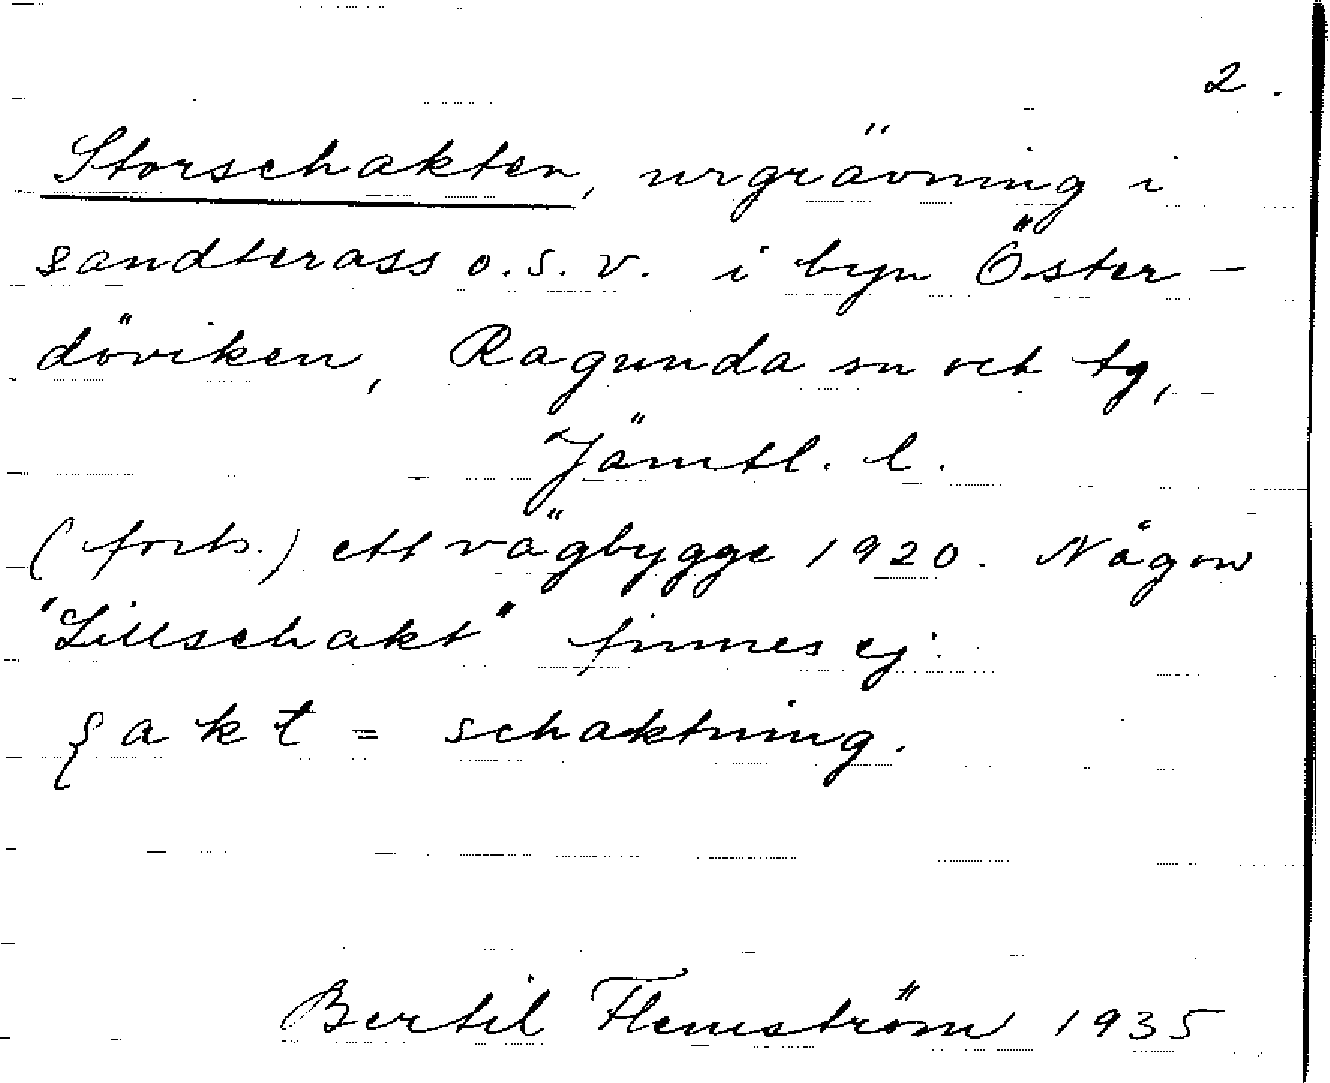 2.
Storschakten, urgrävning i
sandterass o.s.v. i byn Öster-
döviken, Ragunda sn och tg,
Jämtl. l.
(forts.) ett vägbygge 1920. Någon
"Lillschakt" finnes ej.
ʂakt = schaktning.
Bertil Flemström 1935